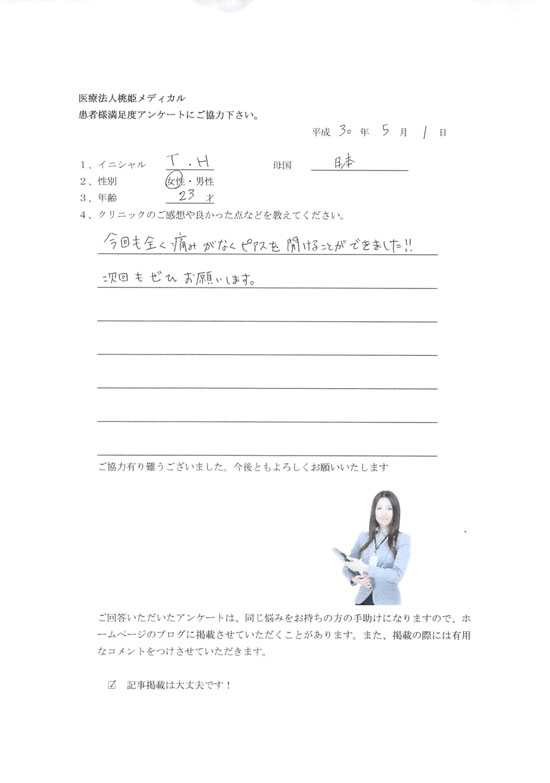 医療法人桃姫メディカル
患者様満足度アンケートにご協力下さい。
平成 30 年 5 月 1 日
1、イニシャル T.H 母国 日本
2、性別 女性・男性
3、年齢 23 才
4、クリニックのご感想や良かった点などを教えてください。
今回も全く痛みがなくピアスを開けることができました!!
次回もぜひお願いします。
ご協力有り難うございました。今後ともよろしくお願いいたします
ご回答いただいたアンケートは、同じ悩みをお持ちの方の手助けになりますので、ホ
ームページのブログに掲載させていただくことがあります。また、掲載の際には有用
なコメントをつけさせていただきます。
☑ 記事掲載は大丈夫です!